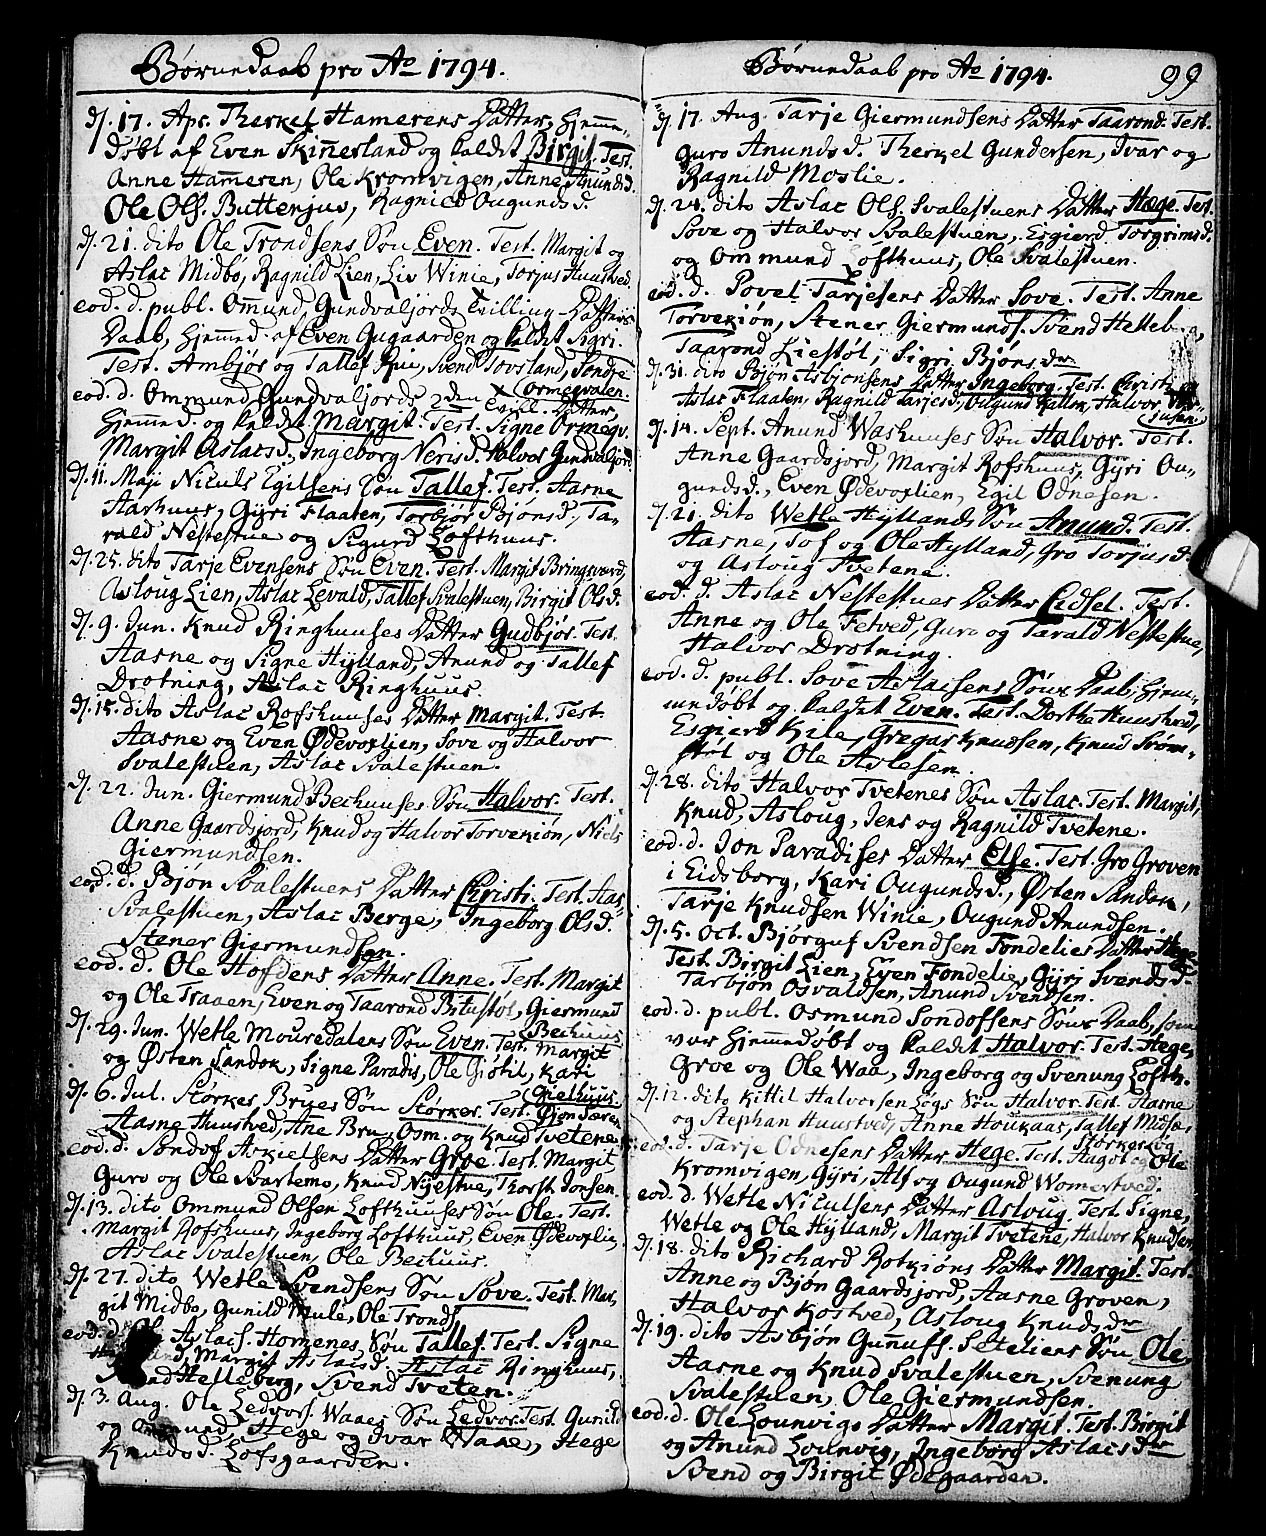 Børnedaab pro Ao 1794.
d. 17. Apr. Therkel Hamerens Datter, hjemme-
døbt af Even Skinnerland og kaldet Birgit. Test.
Anne Hameren, Ole Kromvigen, Anne Anundsd.
Ole Ols. Buttenjus, Ragnild Ougundsd.
d. 21. dito Ole Trondsens Søn Even. Test. Margit og
Aslac Midbø, Ragnild Lien, Liv Winie, Torjus Huustved
eod. d. publ. Omund Gundvaljords Tvilling-Datters
Daab, hjemmed. af Even Gugaarden og kaldet Sigri.
Test. Ambjør og Tallef Rui, Svend Tovsland, Sondre
Ormegvalen.
eod. d. Ommund Gundvaljords 2den Tvill. Datter,
hjemmed. og kaldet Margit. Test. Signe Ormegv.
Margit Aslacsd. Ingeborg Nerisd. Halvor Gundvaljord.
d. 11. Maji Niculs Egilsens Søn Tallef. Test. Aasne
Aashuus, Gÿri Flaaten, Torbjør Bjønsd., Ta-
rald Nestestue og Sigurd Lofthuus.
d. 25. dito Tarje Evensens Søn Even. Test. Margit Bringsværd,
Asloug Lien, Aslac Levald, Tallef Svalestuen, Birgit Olsd.
d. 9. Jun. Knud Ringhuuses Datter Gudbjør. Test.
Aasne og Signe Hÿlland, Anund og Tallef
Drotning, Aslac Ringhuus.
d. 15. dito Aslac Rofshuuses Datter Margit. Test.
Aasne og Even Ødevoxlien, Sove og Halvor
Svalestuen, Aslac Svalestuen.
d. 22. Jun. Giermund Bechuuses Søn Halvor. Test.
Anne Gaardsjord, Knud og Halvor Torvekiøn, Niels
Giermundsen.
eod. d. Bjøn Svalestuens Datter Christi. Test. Aas.
Svalestuen, Aslac Berge, Ingeborg Olsd.
Stener Giermundsen.
eod. d. Ole Hofdens Datter Anne. Test. Margit
og Ole Traaen, Even og Taarond Bitustøl, Giermund
Bechuus
d. 29. Jun. Wetle Mouredalens Søn Even. Test. Margit
og Østen Sandok, Signe Paradis, Ole Giøtil, Kari
Gielhuus.
d. 6. Jul. Størkes Brues Søn Størker. Test. Gjøn Særen
Aasne Huustved, Ane Bru, Osm. og Knud Tvetene
eod. d. Sondof Askielsens Datter Groe. Test. Margit
Guro og Ole Bartemo, Knud Nÿestue, Thorst. Jonsen.
d. 13. dito Ommund Olsen Lofthuuses Søn Ole. Test.
Margit Rofshuus, Ingeborg Lofthuus, Even Ødevoxlien,
Aslac Svalestuen, Ole Bechuus.
d. 27. dito Wetle Svendsens Søn Sove. Test. Mar-
git Midbø, Gunild Mule, Ole Trond
eod. d. Aslacs. Homenes Søn Tallef. Test. Signe
Margit Aslacsd. Aslac Ringhuus,
Helleberg, Svend Tveten.
d. 3. Aug. Ole Ledvors. Waaes Søn Ledvor. Test. Gunild
og Ommund, Hege og Ivar Waae, Hege
Knudsd. Lofsgaarden.
Børnedaab pro Ao 1794. 99
d. 17. Aug. Tarje Giermundsens Datter Taarond. Test.
Guro Anundsd. Therkel Gundersen, Ivar og
Ragnild Moslie.
d. 24. dito Aslac Ols. Svalestuens Datter Hæge. Test.
Sove og Halvor Svalestuen, Esgierd Torgrimsd.
og Ommund Lofthuus, Ole Svalestuen.
eod. d. Povel Tarjesens Datter Sove. Test. Anne
Torvekiøn, Stener Giermunds. Svend Helleberg,
Taarond Liestøl, Sigri Bjønsdr
d. 31. dito Bjøn Asbjønsens Datter Ingeborg. Test. Christi og
Aslac Flaaten, Ragnild Tarjesd., Ougund Kallen, Halvor
d. 14. Sept. Anund Washuuses Søn Halvor. Test.
Anne Gaardsjord, Margit Rofshuus, Gÿri Ou-
gundsd., Even Ødevoxlien, Egil Odnesen.
d. 21. dito Wetle Hÿllands Søn Anund. Test.
Aasne, Tof og Ole Hÿlland, Gro Torjusd.
og Asloug Tvetene.
eod. d. Aslac Nestestues Datter Eidsel. Test.
Anne og Ole Fetved, Guro og Tarald Nestestue,
Halvor Drotning.
eod. d. publ. Sove Aslacsens Søns Daab, hjem-
medøbt og kaldet Even. Test. Dorthe Huustved,
Esgierd Kile, Gregar Knudsen, Knud Strøm-
støl og Ole Aslesen.
d. 28. dito Halvor Tvetenes Søn Aslac. Test. Margit,
Knud, Asloug, Jens og Ragnild Tvetene.
eod. d. Jon Paradises Datter Else. Test. Gro Groven
i Eidsborg, Kari Ougundsd., Østen Sandok,
Tarje Knudsen Winie, Ougund Anundsen.
d. 5. Oct. Bjørguf Svendsen Fondelies Datter Hege
Test. Birgit Lien, Even Fondelie, Gÿri Svendsd.
Tarbjøn Osvaldsen, Anund Svendsen.
eod. d. publ. Osmund Sondofsens Søns Daab, som
var hjemmedøbt og kaldet Halvor. Test. Hege,
Groe og Ole Waa, Ingeborg og Svenung Lofth.
d. 12. dito Kittil Halvorsen Løgs Søn Halvor. Test. Aasne
og Stephan Huustved, Anne Houkaas, Tallef Midsæ,
Størker og
eod. d. Tarje Odnesens Datter Hege. Test. Aagot og Ole
Kromvigen, Gÿri, Alf og Ougund Womertved.
eod. d. Wetle Niculsens Datter Asloug. Test. Signe,
Wetle og Ole Hÿlland, Margit Tvetene, Halvor Knudsen
d. 18. dito Richard Rotkiøns Datter Margit. Test.
Anne og Bjøn Gaardsjord, Aasne Groven,
Halvor Kostved, Asloug Knudsdr
d. 19. dito Asbjøn Gunufs. Seteliens Søn Ole.
Aasne og Knud Svalestuen, Svenung
Svalestuen, Ole Giermundsen.
eod. d. Ole Lounvigs Datter Margit. Test. Birgit
og Anund Lounvig, Ingeborg Aslacsdr
Svend og Birgit Ødegaarden.